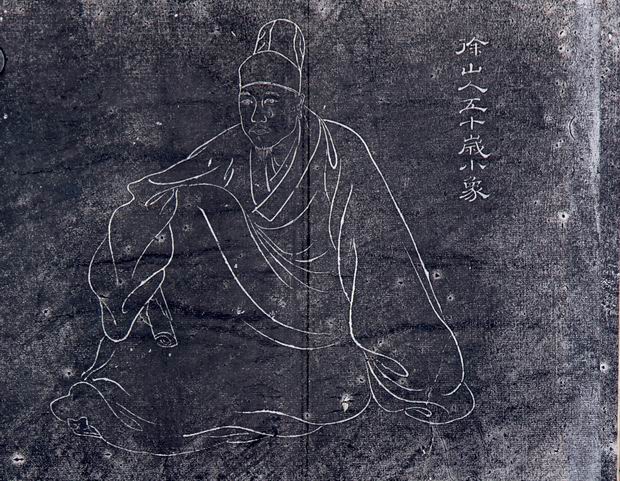 徐山人五十歲小象